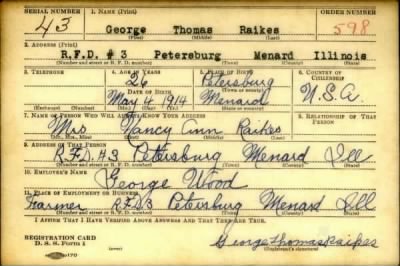 SERIAL NUMBER 1. NAME (Print) ORDER NUMBER
43 George Thomas Raikes 598
(First) (Middle) (Last)
2. ADDRESS (Print)
R.F.D. # 3 Petersburg Menard Illinois
(Number and street or R. F. D. number) (Town) (County) (State)
3. TELEPHONE 4. AGE IN YEARS 5. PLACE OF BIRTH 6. COUNTRY OF CITIZENSHIP
26 Petersburg
DATE OF BIRTH
May 4 1914 Menard U.S.A.
(Exchange) (Number) (Mo.) (Day) (Yr.) (State or country)
7. NAME OF PERSON WHO WILL ALWAYS KNOW YOUR ADDRESS 8. RELATIONSHIP OF THAT PERSON
Mrs Nancy Ann Raikes
(Mr., Mrs., Miss) (First) (Middle) (Last)
9. ADDRESS OF THAT PERSON
R.F.D #3 Petersburg Menard Ill
(Number and street or R. F. D. number) (Town) (County) (State)
10. EMPLOYER'S NAME
George Wood
11. PLACE OF EMPLOYMENT OR BUSINESS
Farmer R.F.D3 Petersburg Menard Ill
(Number and street or R. F. D. number) (Town) (County) (State)
I AFFIRM THAT I HAVE VERIFIED ABOVE ANSWERS AND THAT THEY ARE TRUE.
REGISTRATION CARD
D. S. S. Form 1
George Thomas Raikes
(Registrant's signature)